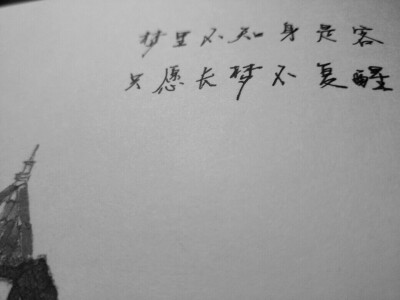 梦里不知身是客
只愿长梦不复醒